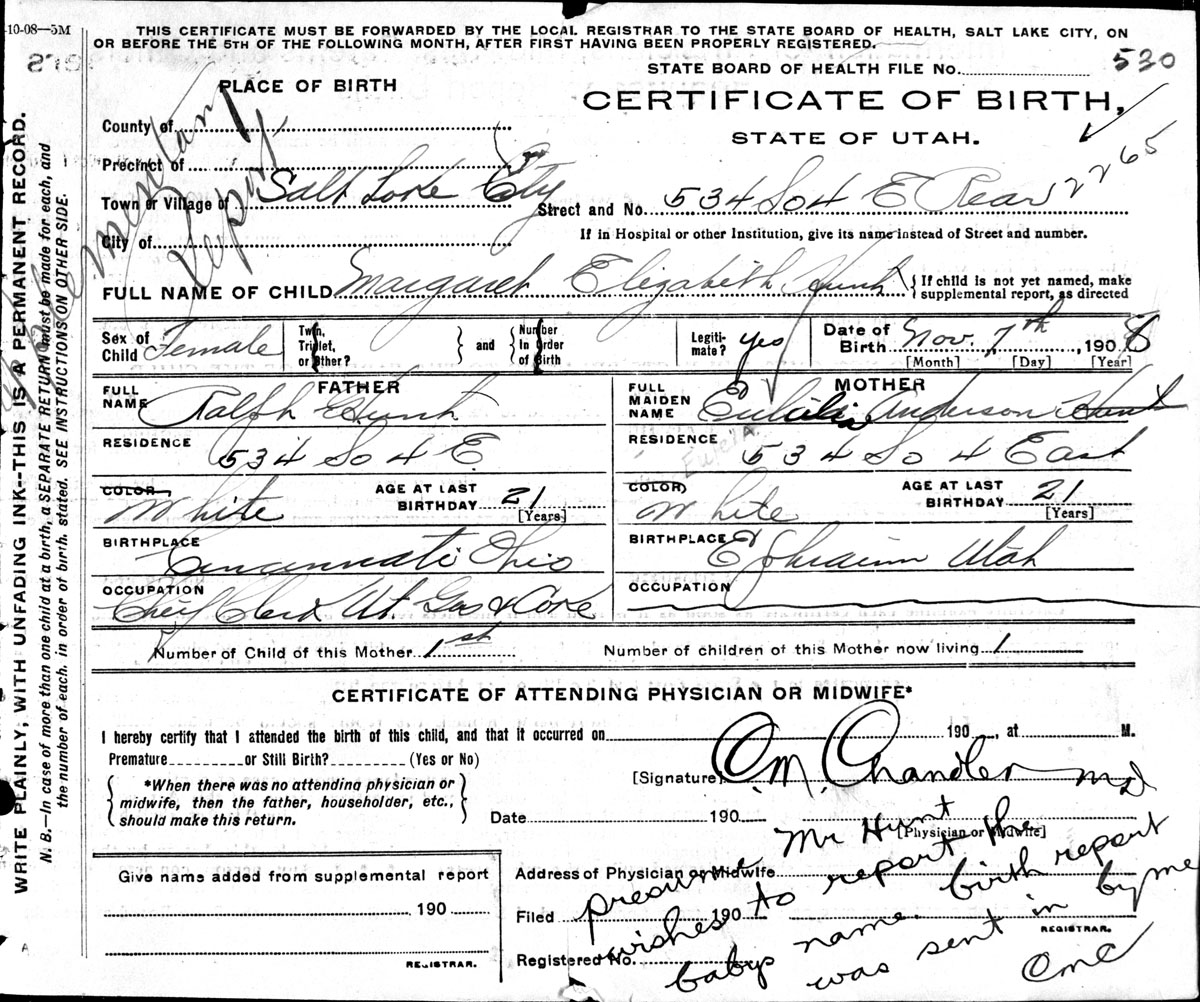 10-08—5M
THIS CERTIFICATE MUST BE FORWARDED BY THE LOCAL REGISTRAR TO THE STATE BOARD OF HEALTH, SALT LAKE CITY, ON
OR BEFORE THE 5TH OF THE FOLLOWING MONTH, AFTER FIRST HAVING BEEN PROPERLY REGISTERED.
STATE BOARD OF HEALTH FILE No. 530
PLACE OF BIRTH
CERTIFICATE OF BIRTH,
STATE OF UTAH.
2265
County of
Precinct of
Town or Village of Salt Lake City
Street and No. 534 So 4 E Rear
City of
If in Hospital or other Institution, give its name instead of Street and number.
FULL NAME OF CHILD Margaret Elizabeth Hunt { If child is not yet named, make
supplemental report, as directed
Sex of Child Female
Twin, Triplet, or Other? } and { Number In Order of Birth
Legitimate? yes
Date of Birth Nov. 7th, 1908
[Month] [Day] [Year]
FATHER
FULL NAME Ralph E Hunt
RESIDENCE 534 So 4 E.
COLOR White
AGE AT LAST BIRTHDAY 21 [Years]
BIRTHPLACE Cincannati Ohio
OCCUPATION Chief Clerk Ut. Gas & Coke
MOTHER
FULL MAIDEN NAME Anderson Hunt
RESIDENCE 534 So 4 East
COLOR White
AGE AT LAST BIRTHDAY 21 [Years]
BIRTHPLACE Ephraim Utah
OCCUPATION
Number of Child of this Mother 1st
Number of children of this Mother now living 1
CERTIFICATE OF ATTENDING PHYSICIAN OR MIDWIFE*
I hereby certify that I attended the birth of this child, and that it occurred on 190 , at M.
Premature or Still Birth? (Yes or No)
{ *When there was no attending physician or
midwife, then the father, householder, etc.,
should make this return. }
[Signature] O.M. Chandler MD
Date 190
[Physician or Midwife]
Address of Physician or Midwife
Filed 190
REGISTRAR.
Registered No.
presume Mr Hunt
wishes to report the
babys name. birth report
was sent in by me
OMC
Give name added from supplemental report
190
REGISTRAR.
WRITE PLAINLY, WITH UNFADING INK--THIS IS A PERMANENT RECORD.
N. B.—In case of more than one child at a birth, a SEPARATE RETURN must be made for each, and
the number of each. in order of birth. stated. SEE INSTRUCTIONS ON OTHER SIDE.
A